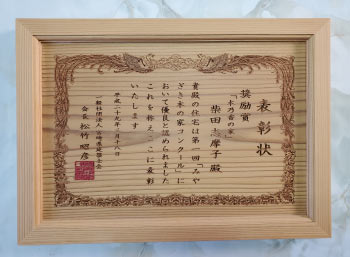 表彰状
奨励賞
「木乃香の家」
柴田志摩子殿
貴殿の住宅は第一回「みや
ざき木の家コンクール」に
おいて優良と認められました
これを称え、ここに表彰
いたします
平成二十九年 月十八日
一般社団法人 宮崎県建築士会
会長 松竹昭彦